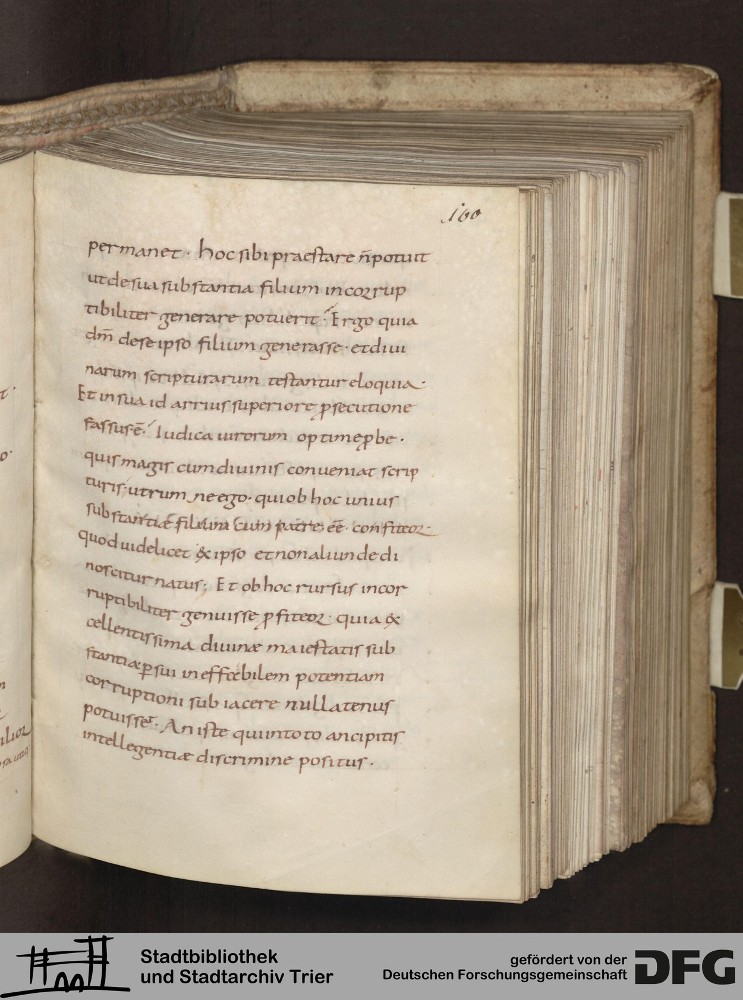 160
permanet· hoc sibi praestare n̄ potuit
ut de sua substantia filium incorrup
tibiliter generare potuerit· Ergo quia
dm̄ de se ipso filium generasse· et diui
narum scripturarum testantur eloquia·
Et in sua id arrius superiore ꝑsecutione
fassus ē· Iudica uirorum optime ꝓbe·
quis magis cum diuinis conueniat scrip
turis· utrum ne ego· qui ob hoc unius
substantiæ filium cum patre eē confiteor
quod uidelicet ex ipso et non aliunde di
noscitur natus; Et ob hoc rursus incor
ruptibiliter genuisse ꝓfiteor· quia ex
cellentissima diuinæ maiestatis sub
stantia ꝑ sui ineffabilem potentiam
corruptioni subiacere nullatenus
potuisset· An iste qui in toto ancipitis
intellegentiæ discrimine positus·
Stadtbibliothek
und Stadtarchiv Trier
gefördert von der
Deutschen Forschungsgemeinschaft
DFG